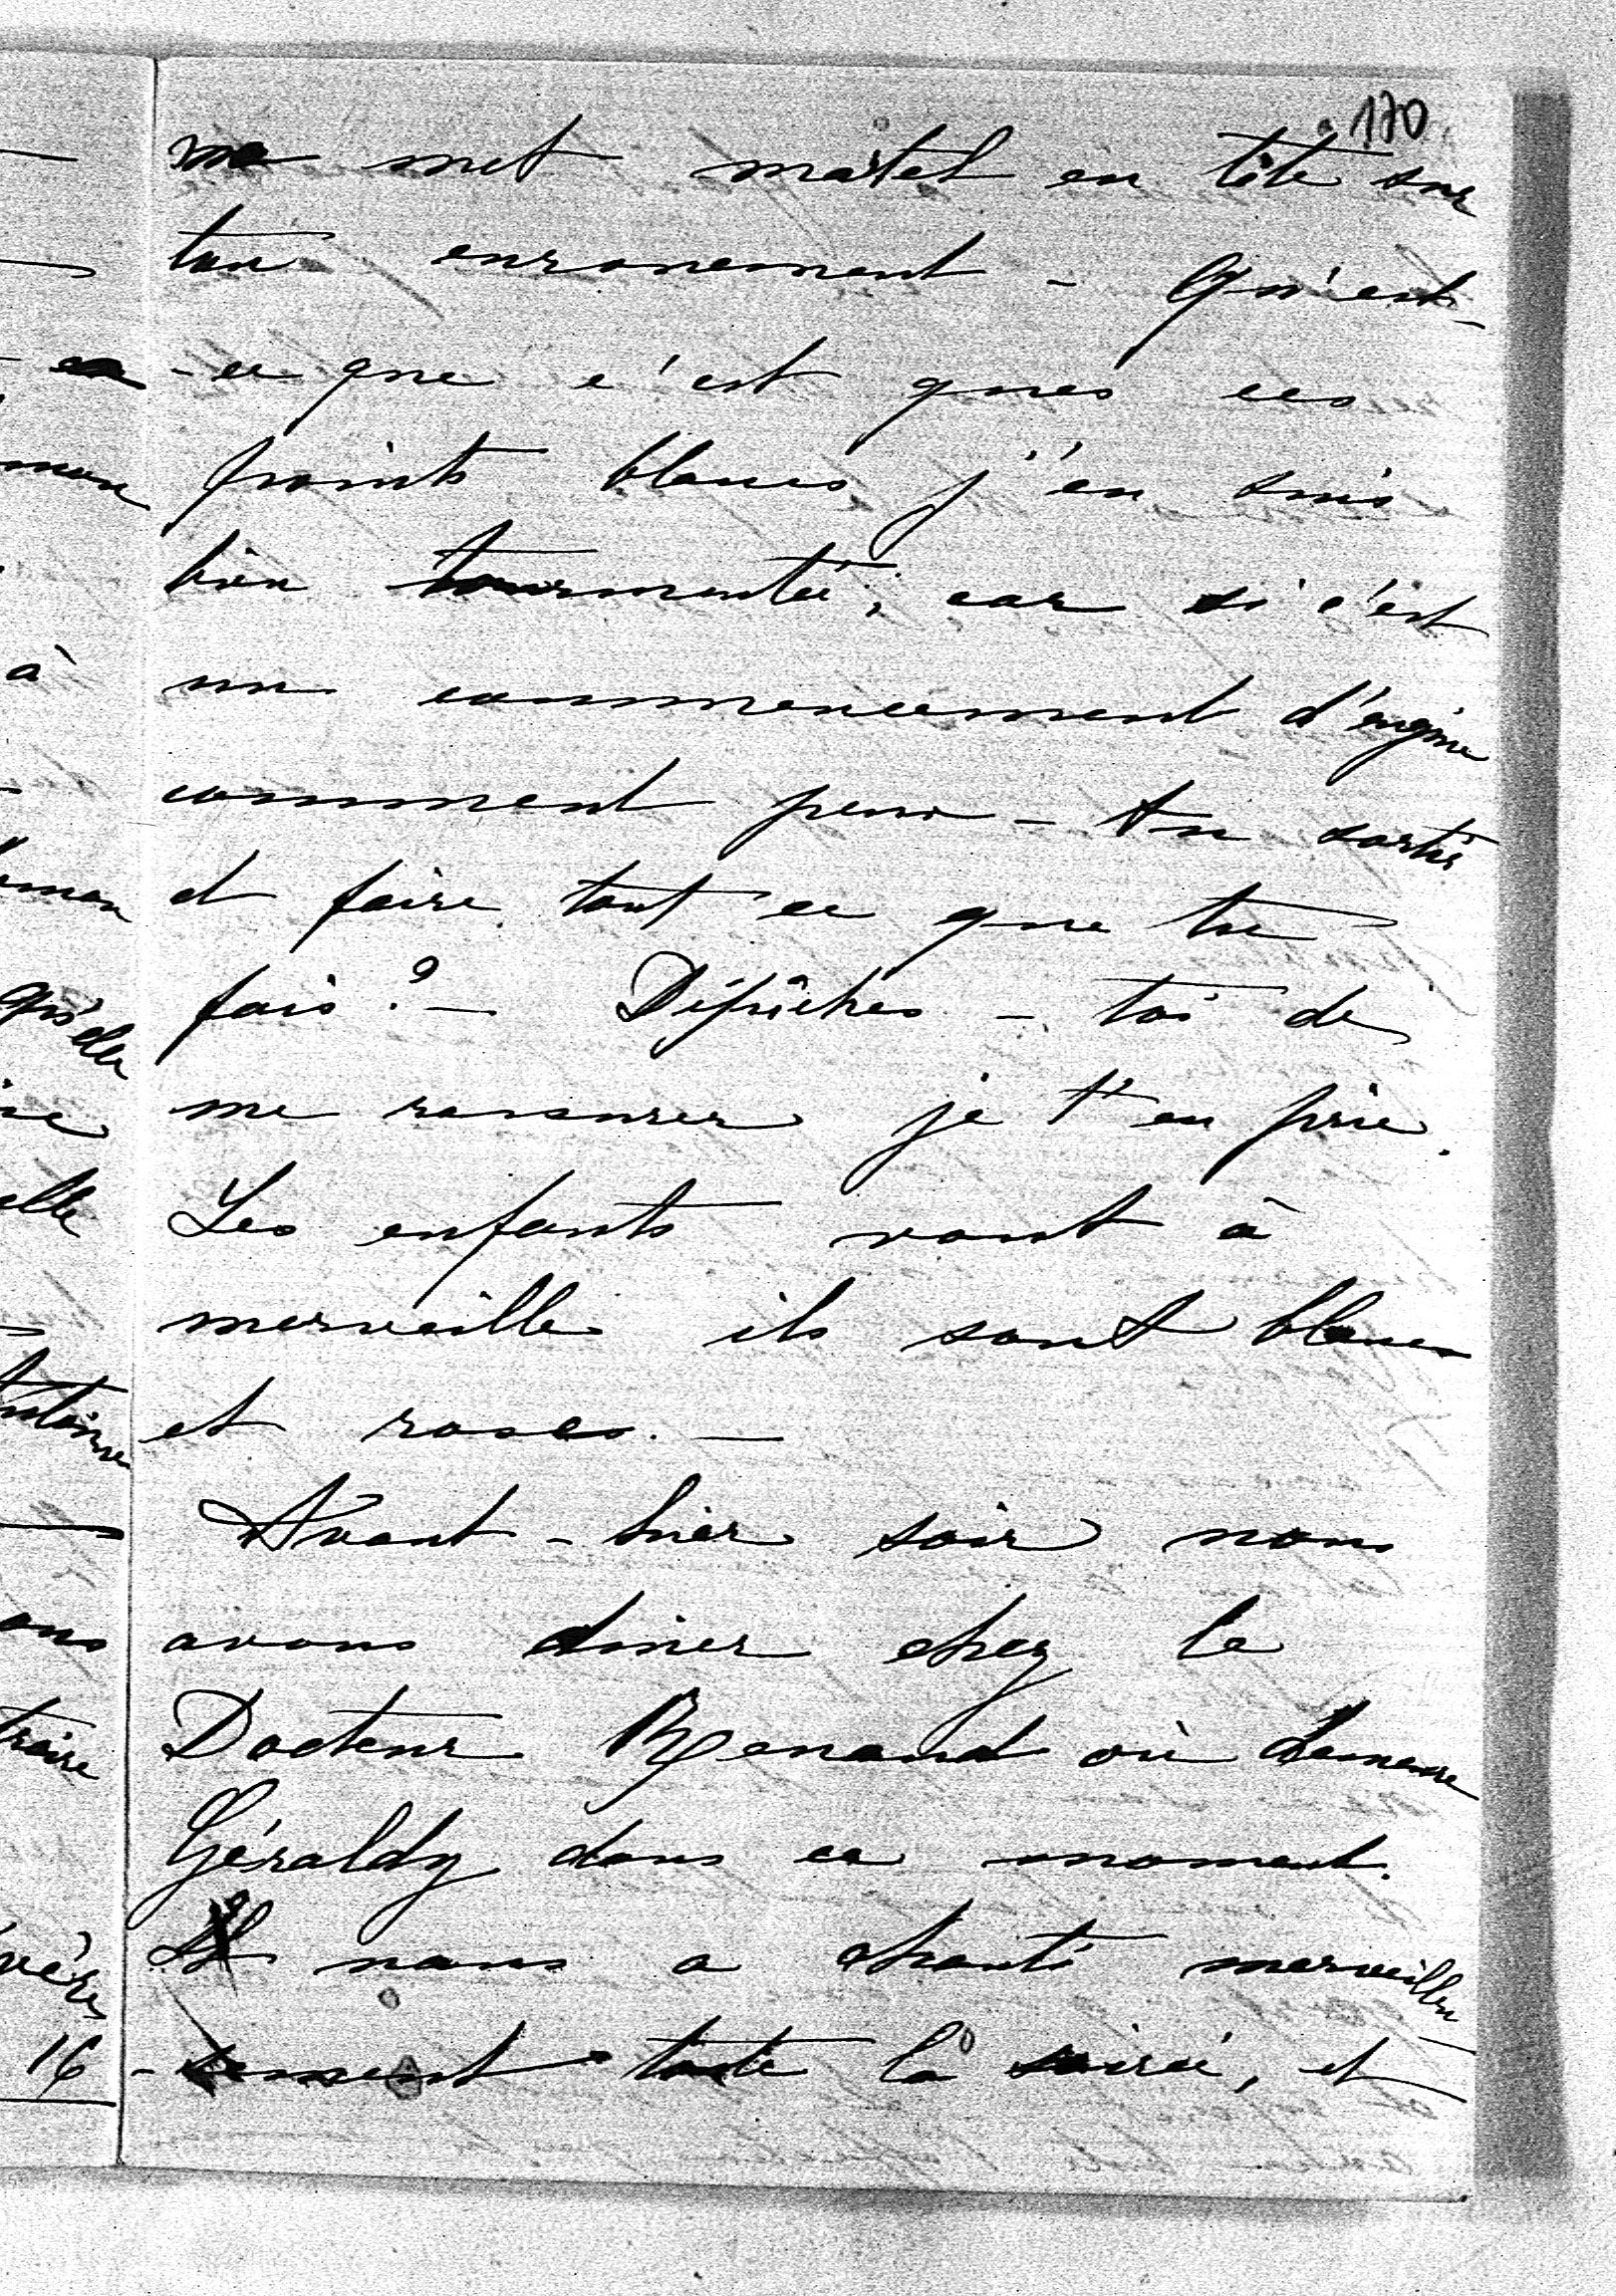 170
me met martel en tête sur
ton enrouement - Qu'est-
-ce que c'est ques ces
points blancs j'en suis
bien tourmentée; car si c'est
un commencement d'angine
comment peux-tu sortir
et faire tout ce que tu
fais? - Dépêches-toi de
me rassurer je t'en prie.
Les enfants vont à
merveille ils sont blancs
et roses. -
Avant-hier soir nous
avons diner chez le
Docteur Renaud où demeure
Géraldy dans ce moment.
Il nous a chanté merveilleu
-sement toute la soirée, et
mon
à
elle
ons
traire
16